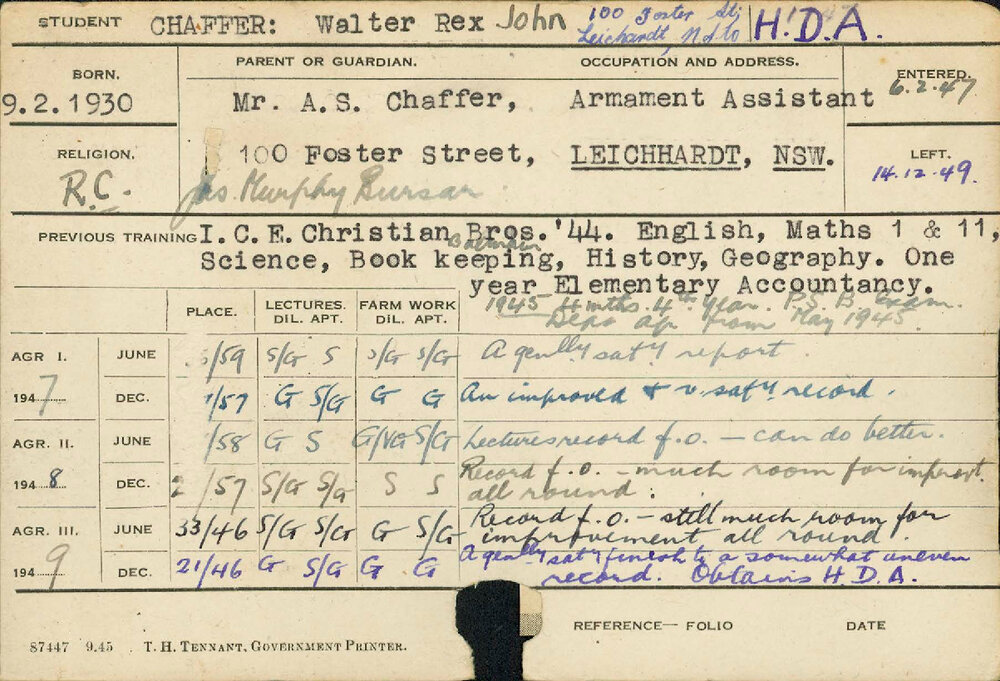 STUDENT CHAFFER: Walter Rex John 100 Foster St, Leichardt, N S W H.D.A.
BORN. PARENT OR GUARDIAN. OCCUPATION AND ADDRESS. ENTERED.
9.2.1930 Mr. A.S. Chaffer, Armament Assistant 6.2.47
RELIGION. 100 Foster Street, LEICHHARDT, NSW. LEFT.
R.C. Jas. Murphy Bursar 14.12.49.
PREVIOUS TRAINING I.C.E. Christian Bros. '44. English, Maths 1 & 11,
Balmain
Science, Book keeping, History, Geography. One
year Elementary Accountancy.
1945 4 mths. 4th year. P.S.B. Exam.
from May 1945.
PLACE. LECTURES. FARM WORK
DIL. APT. DIL. APT.
AGR I. JUNE /59 S/G S S/G S/G A genlly saty report.
1947 DEC. /57 G S/G G G An improved & v. saty. record.
AGR. II. JUNE /58 G S G/VG S/G Lectures record f.o. — can do better.
1948 DEC. /57 S/G S/G S S Record f.o. — much room for improvt.
all round.
AGR. III. JUNE 33/46 S/G S/G G S/G Record f.o. — still much room for
improvement all round.
1949 DEC. 21/46 G S/G G G A genlly saty finish to a somewhat uneven
record. Obtains H.D.A.
REFERENCE— FOLIO DATE
87447 9.45 T. H. TENNANT, GOVERNMENT PRINTER.